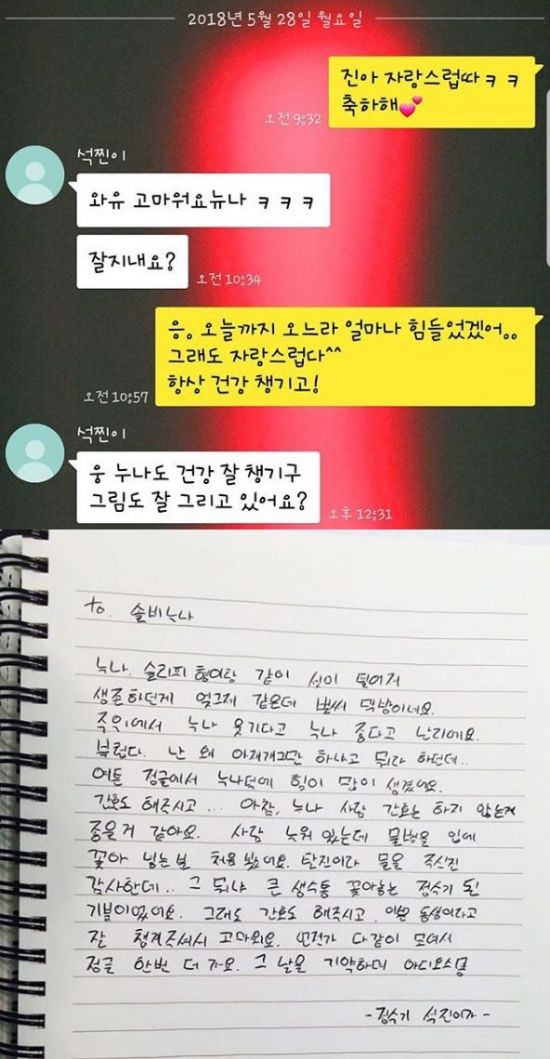 2018년 5월 28일 월요일
진아 자랑스럽따ㅋㅋ
축하해💕
오전 9:32
석찐이
와유 고마워요뉴나 ㅋㅋㅋ
잘지내요?
오전 10:34
응. 오늘까지 오느라 얼마나 힘들었겠어..
그래도 자랑스럽다^^
항상 건강 챙기고!
오전 10:57
석찐이
웅 누나도 건강 잘 챙기구
그림도 잘 그리고 있어요?
오후 12:31
to. 솔비누나
누나, 슬리피 형이랑 같이 셋이 떨어져
생존하던게 엊그제 같은데 벌써 막방이네요.
주위에서 누나 웃기다고 누나 좋다고 난리에요.
부럽다. 난 왜 아재개그만 하냐고 뭐라 하던데..
여튼 정글에서 누나덕에 힘이 많이 생겼어요.
간호도 해주시고... 아참, 누나 사람 간호는 하지 않는게
좋을거 같아요. 사람 누워 있는데 물병을 입에
꽂아 넣는분 처음 봤어요. 탈진이라 물을 주신건
감사한데.. 그 뭐냐 큰 생수통 꽂아놓는 정수기 된
기분이었어요. 그래도 간호도 해주시고, 이쁜 동생이라고
잘 챙겨주셔서 고마워요. 언젠가 다같이 모여서
정글 한번 더 가요. 그 날을 기약하며 아디오스
- 정수기 석진이가 -